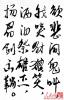 欲悲闻鬼叫
我哭豺狼笑
洒泪祭雄杰
扬眉剑出鞘